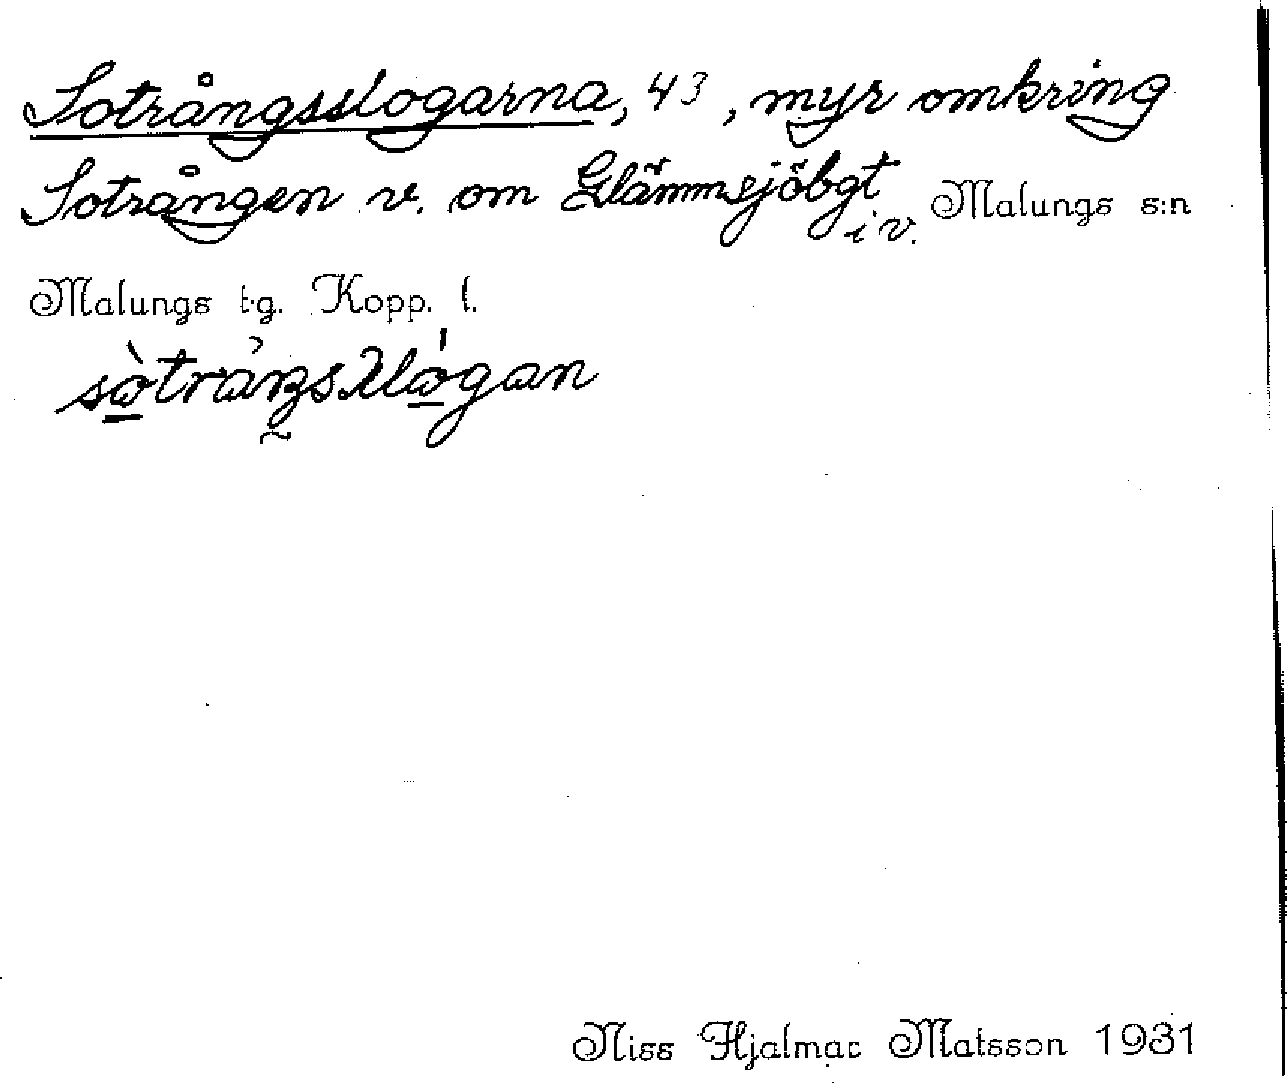 Sotrångsslogarna, 43, myr omkring
Sotrången v. om Glämmsjöbgt i v. Malungs s:n
Malungs t.g. Kopp. l.
Niss Hjalmar Matsson 1931